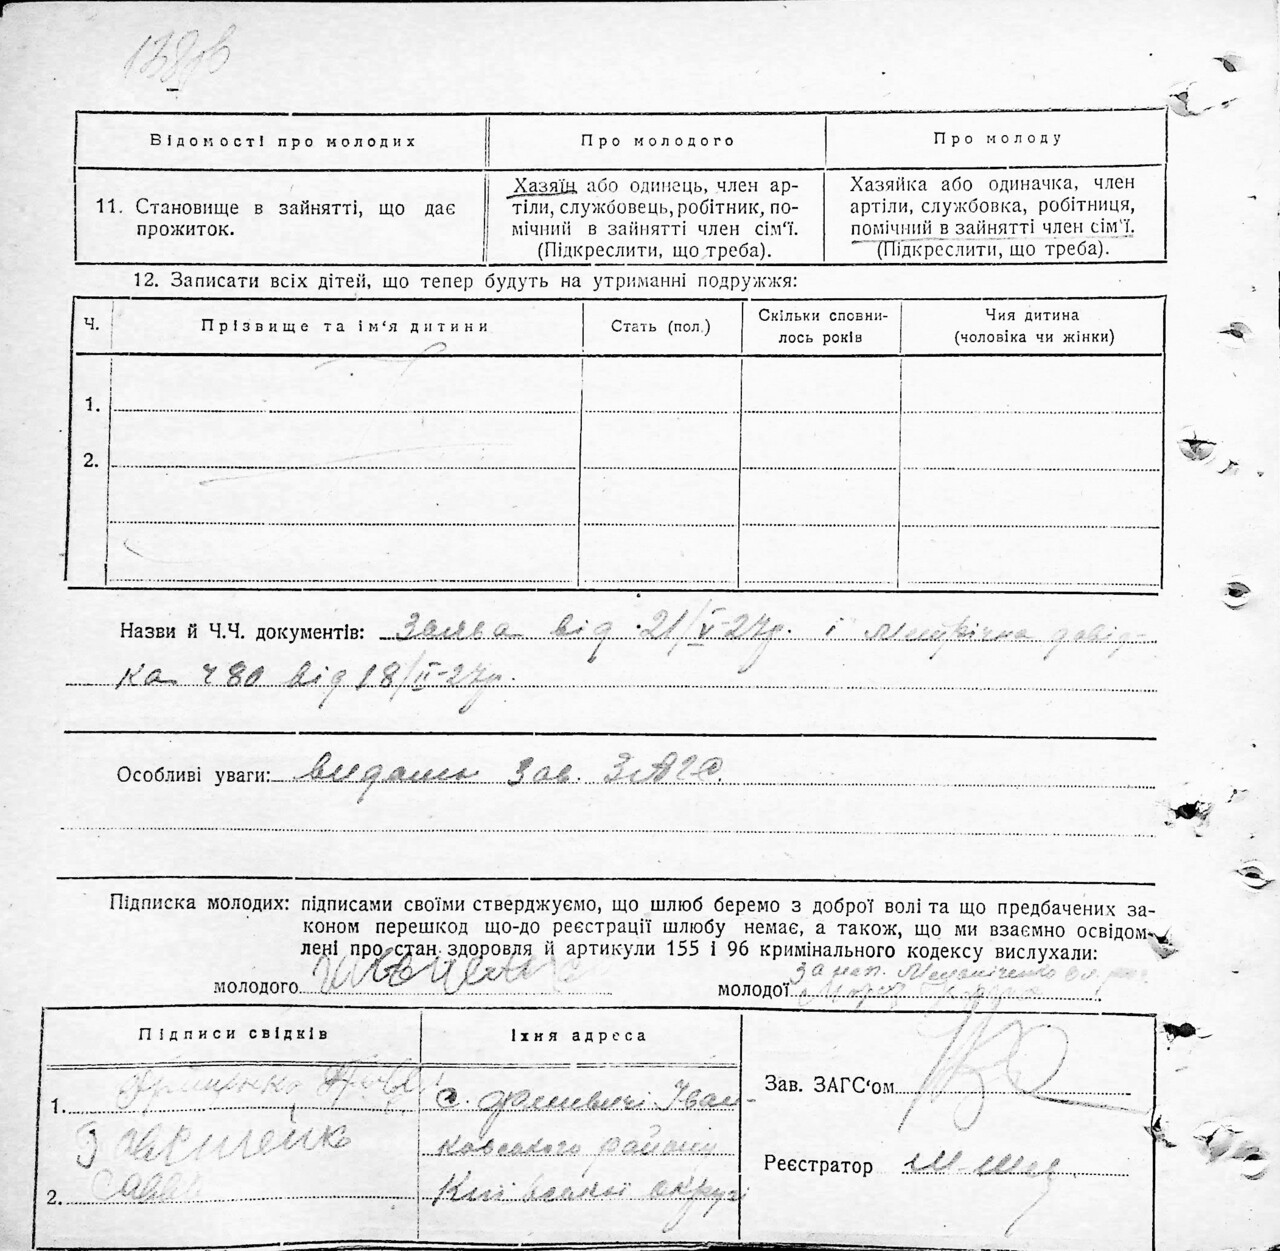 138зв
Відомості про молодих
Про молодого
Про молоду
11. Становище в зайнятті, що дає
прожиток.
Хазяїн або одинець, член ар-
тіли, службовець, робітник, по-
мічний в зайнятті член сім'ї.
(Підкреслити, що треба).
Хазяйка або одиначка, член
артіли, службовка, робітниця,
помічний в зайнятті член сім'ї.
(Підкреслити, що треба).
12. Записати всіх дітей, що тепер будуть на утриманні подружжя:
Ч.
Прізвище та ім'я дитини
Стать (пол.)
Скільки сповни-
лось років
Чия дитина
(чоловіка чи жінки)
1.
2.
Назви й Ч.Ч. документів: Заява від 21/V-27р. і Метрична довід-
ка ч 80 від 18/II-27р.
Особливі уваги: видати Зав. ЗАГС.
Підписка молодих: підписами своїми стверджуємо, що шлюб беремо з доброї волі та що предбачених за-
коном перешкод що-до реєстрації шлюбу немає, а також, що ми взаємно освідом-
лені про стан здоровля й артикули 155 і 96 кримінального кодексу вислухали:
молодого
молодої за неп.
Підписи свідків
Їхня адреса
1.
с. Іван-
ковського району
2.
Київської округи
Зав. ЗАГС'ом
Реєстратор